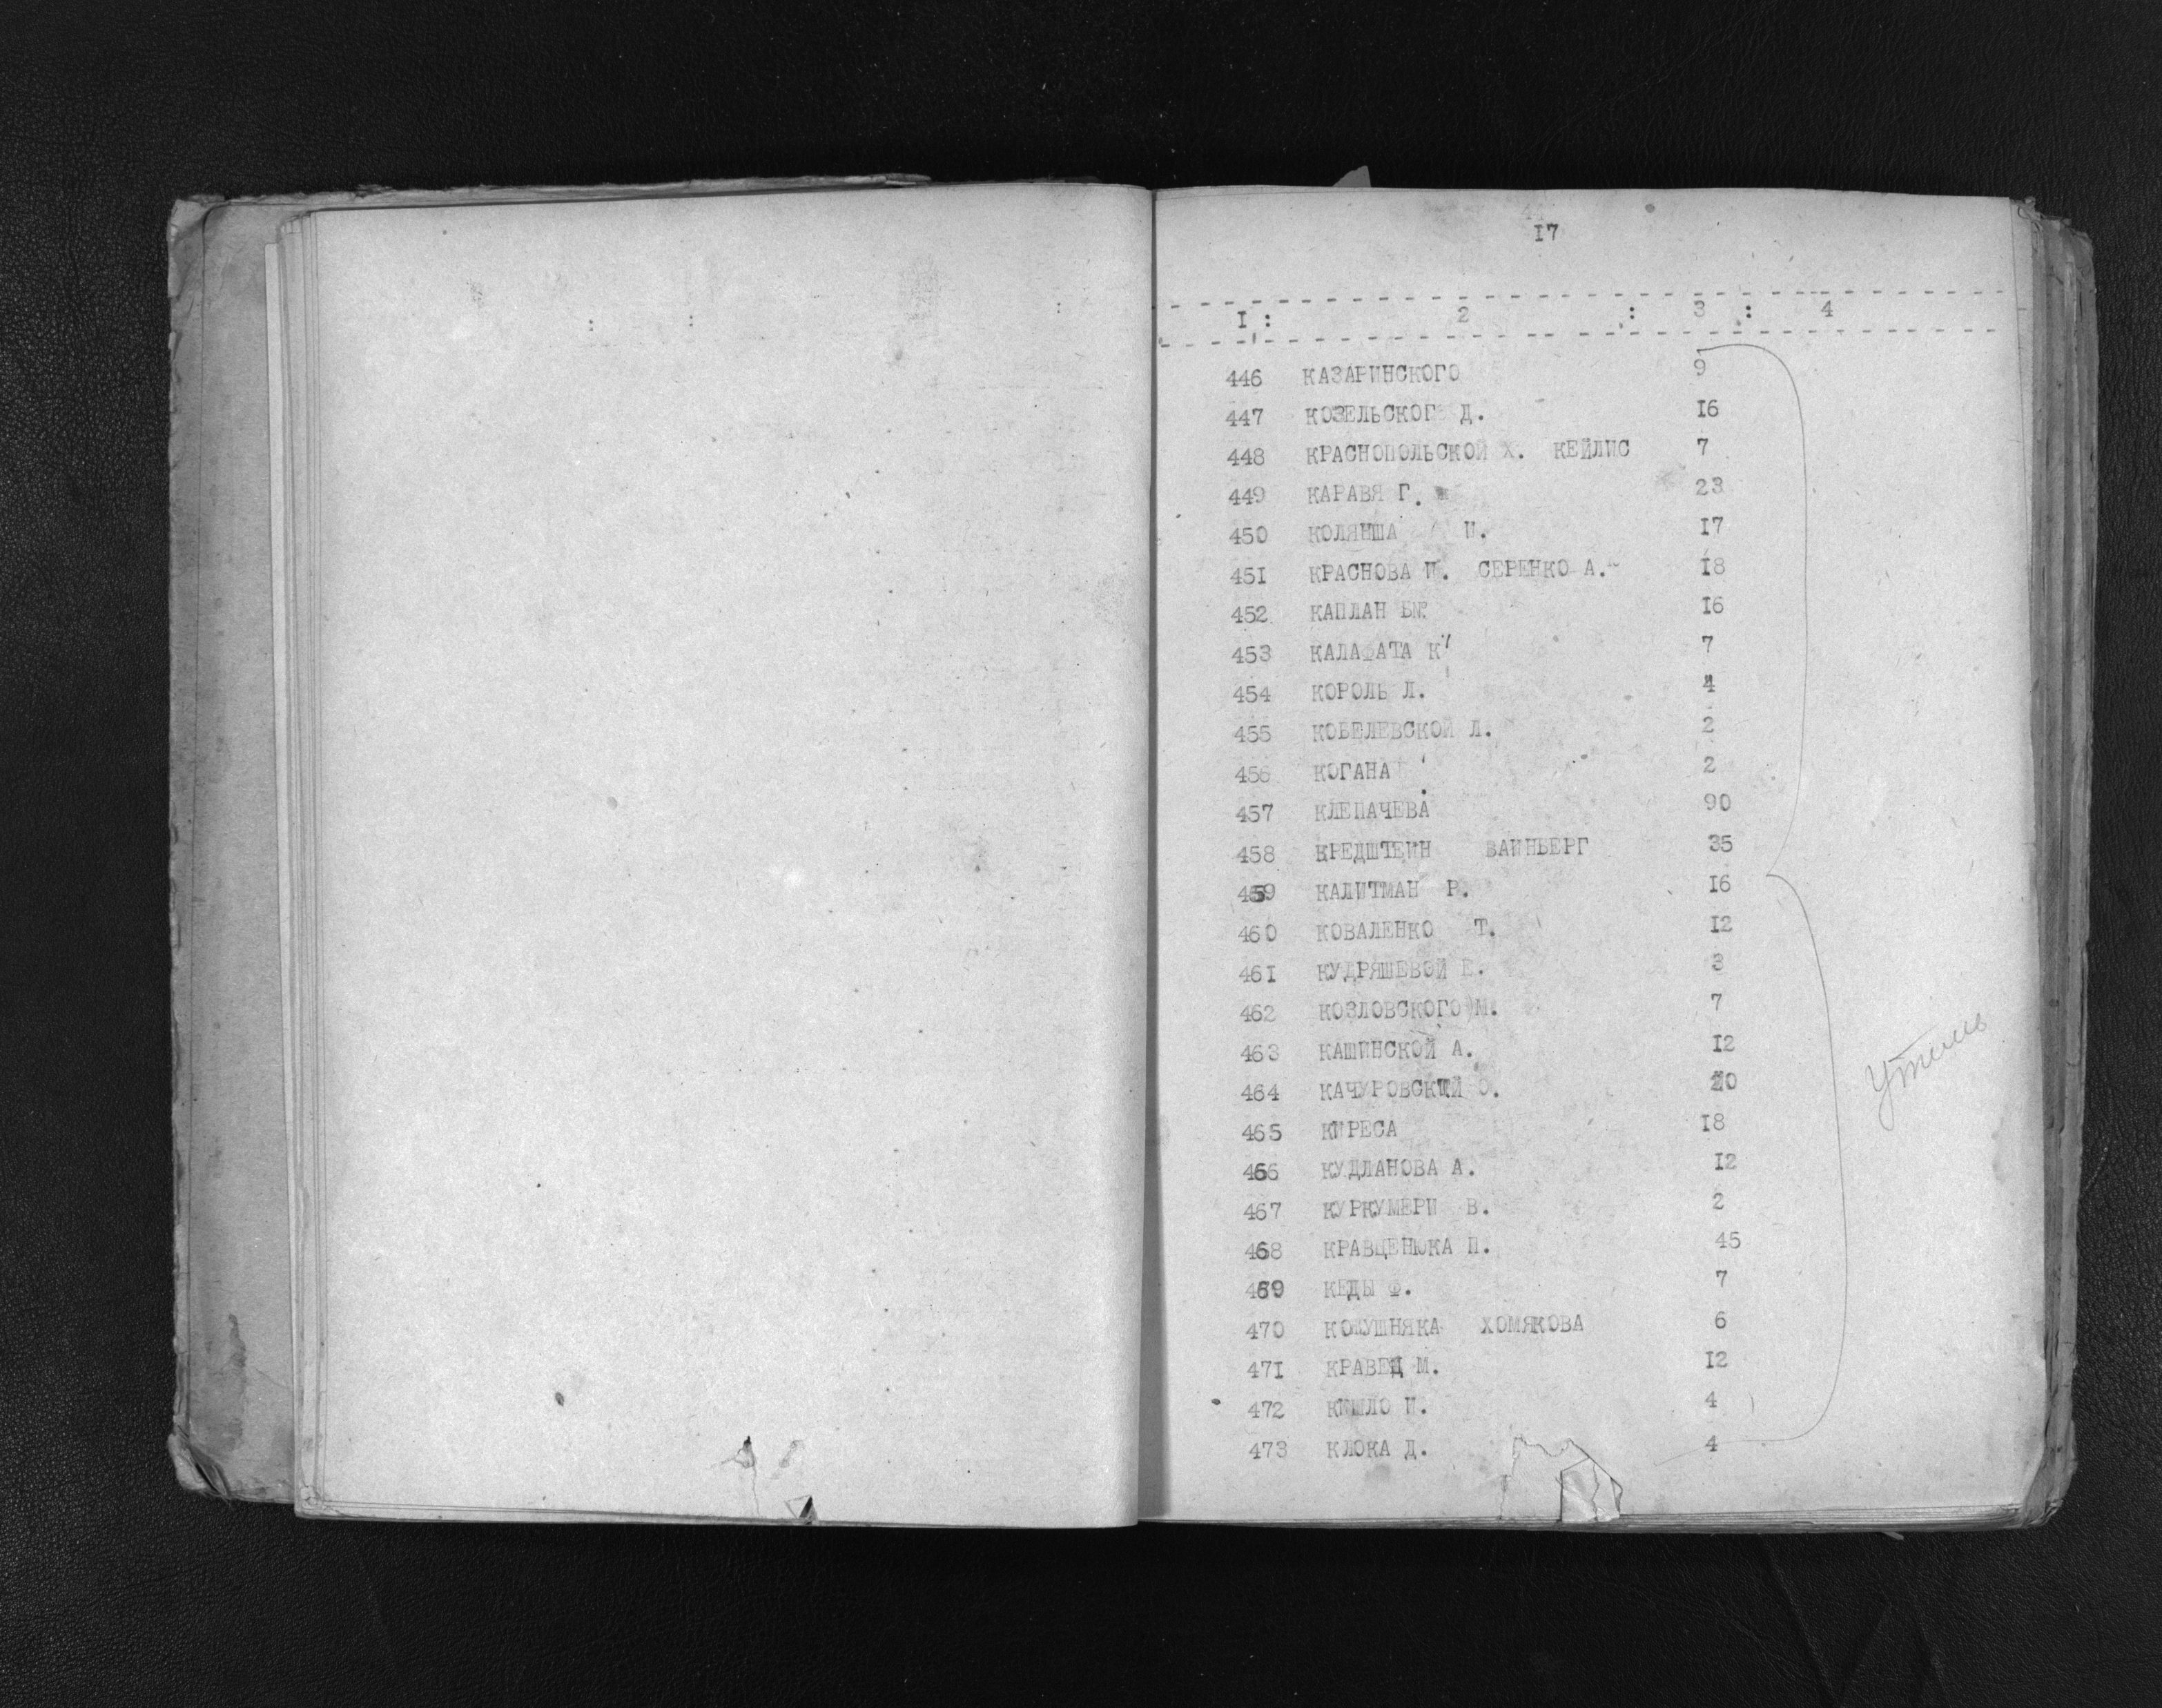 17
I : 2 : 3 : 4
446 КАЗАРИНСКОГО 9
447 КОЗЕЛЬСКОГО Д. 16
448 КРАСНОПОЛЬСКОЙ Х. КЕЙЛИС 7
449 КАРАВЯ Г. 23
450 КОЛЯНША И. 17
451 КРАСНОВА И. СЕРЕНКО А. 18
452 КАПЛАН 16
453 КАЛАФАТА К 7
454 КОРОЛЬ Л. 4
455 КОБЕЛЕВСКОЙ Л. 2
456 КОГАНА 2
457 КЛЕПАЧЕВА 90
458 КРЕДШТЕИН ВАИНБЕРГ 35
459 КАЛИТМАН Р. 16
460 КОВАЛЕНКО Т. 12
461 КУДРЯШЕВОЙ Е. 3
462 КОЗЛОВСКОГО М. 7
463 КАШИНСКОЙ А. 12
464 КАЧУРОВСКИЙ О. 20
465 КИРЕСА 18
466 КУДЛАНОВА А. 12
467 КУРКУМЕРИ В. 2
468 КРАВЦЕНЮКА П. 45
469 КЕДЫ Ф. 7
470 КОЖУШНЯКА ХОМЯКОВА 6
471 КРАВЕЦ М. 12
472 КИШЛО И. 4
473 КЛОКА Д. 4
Утиль